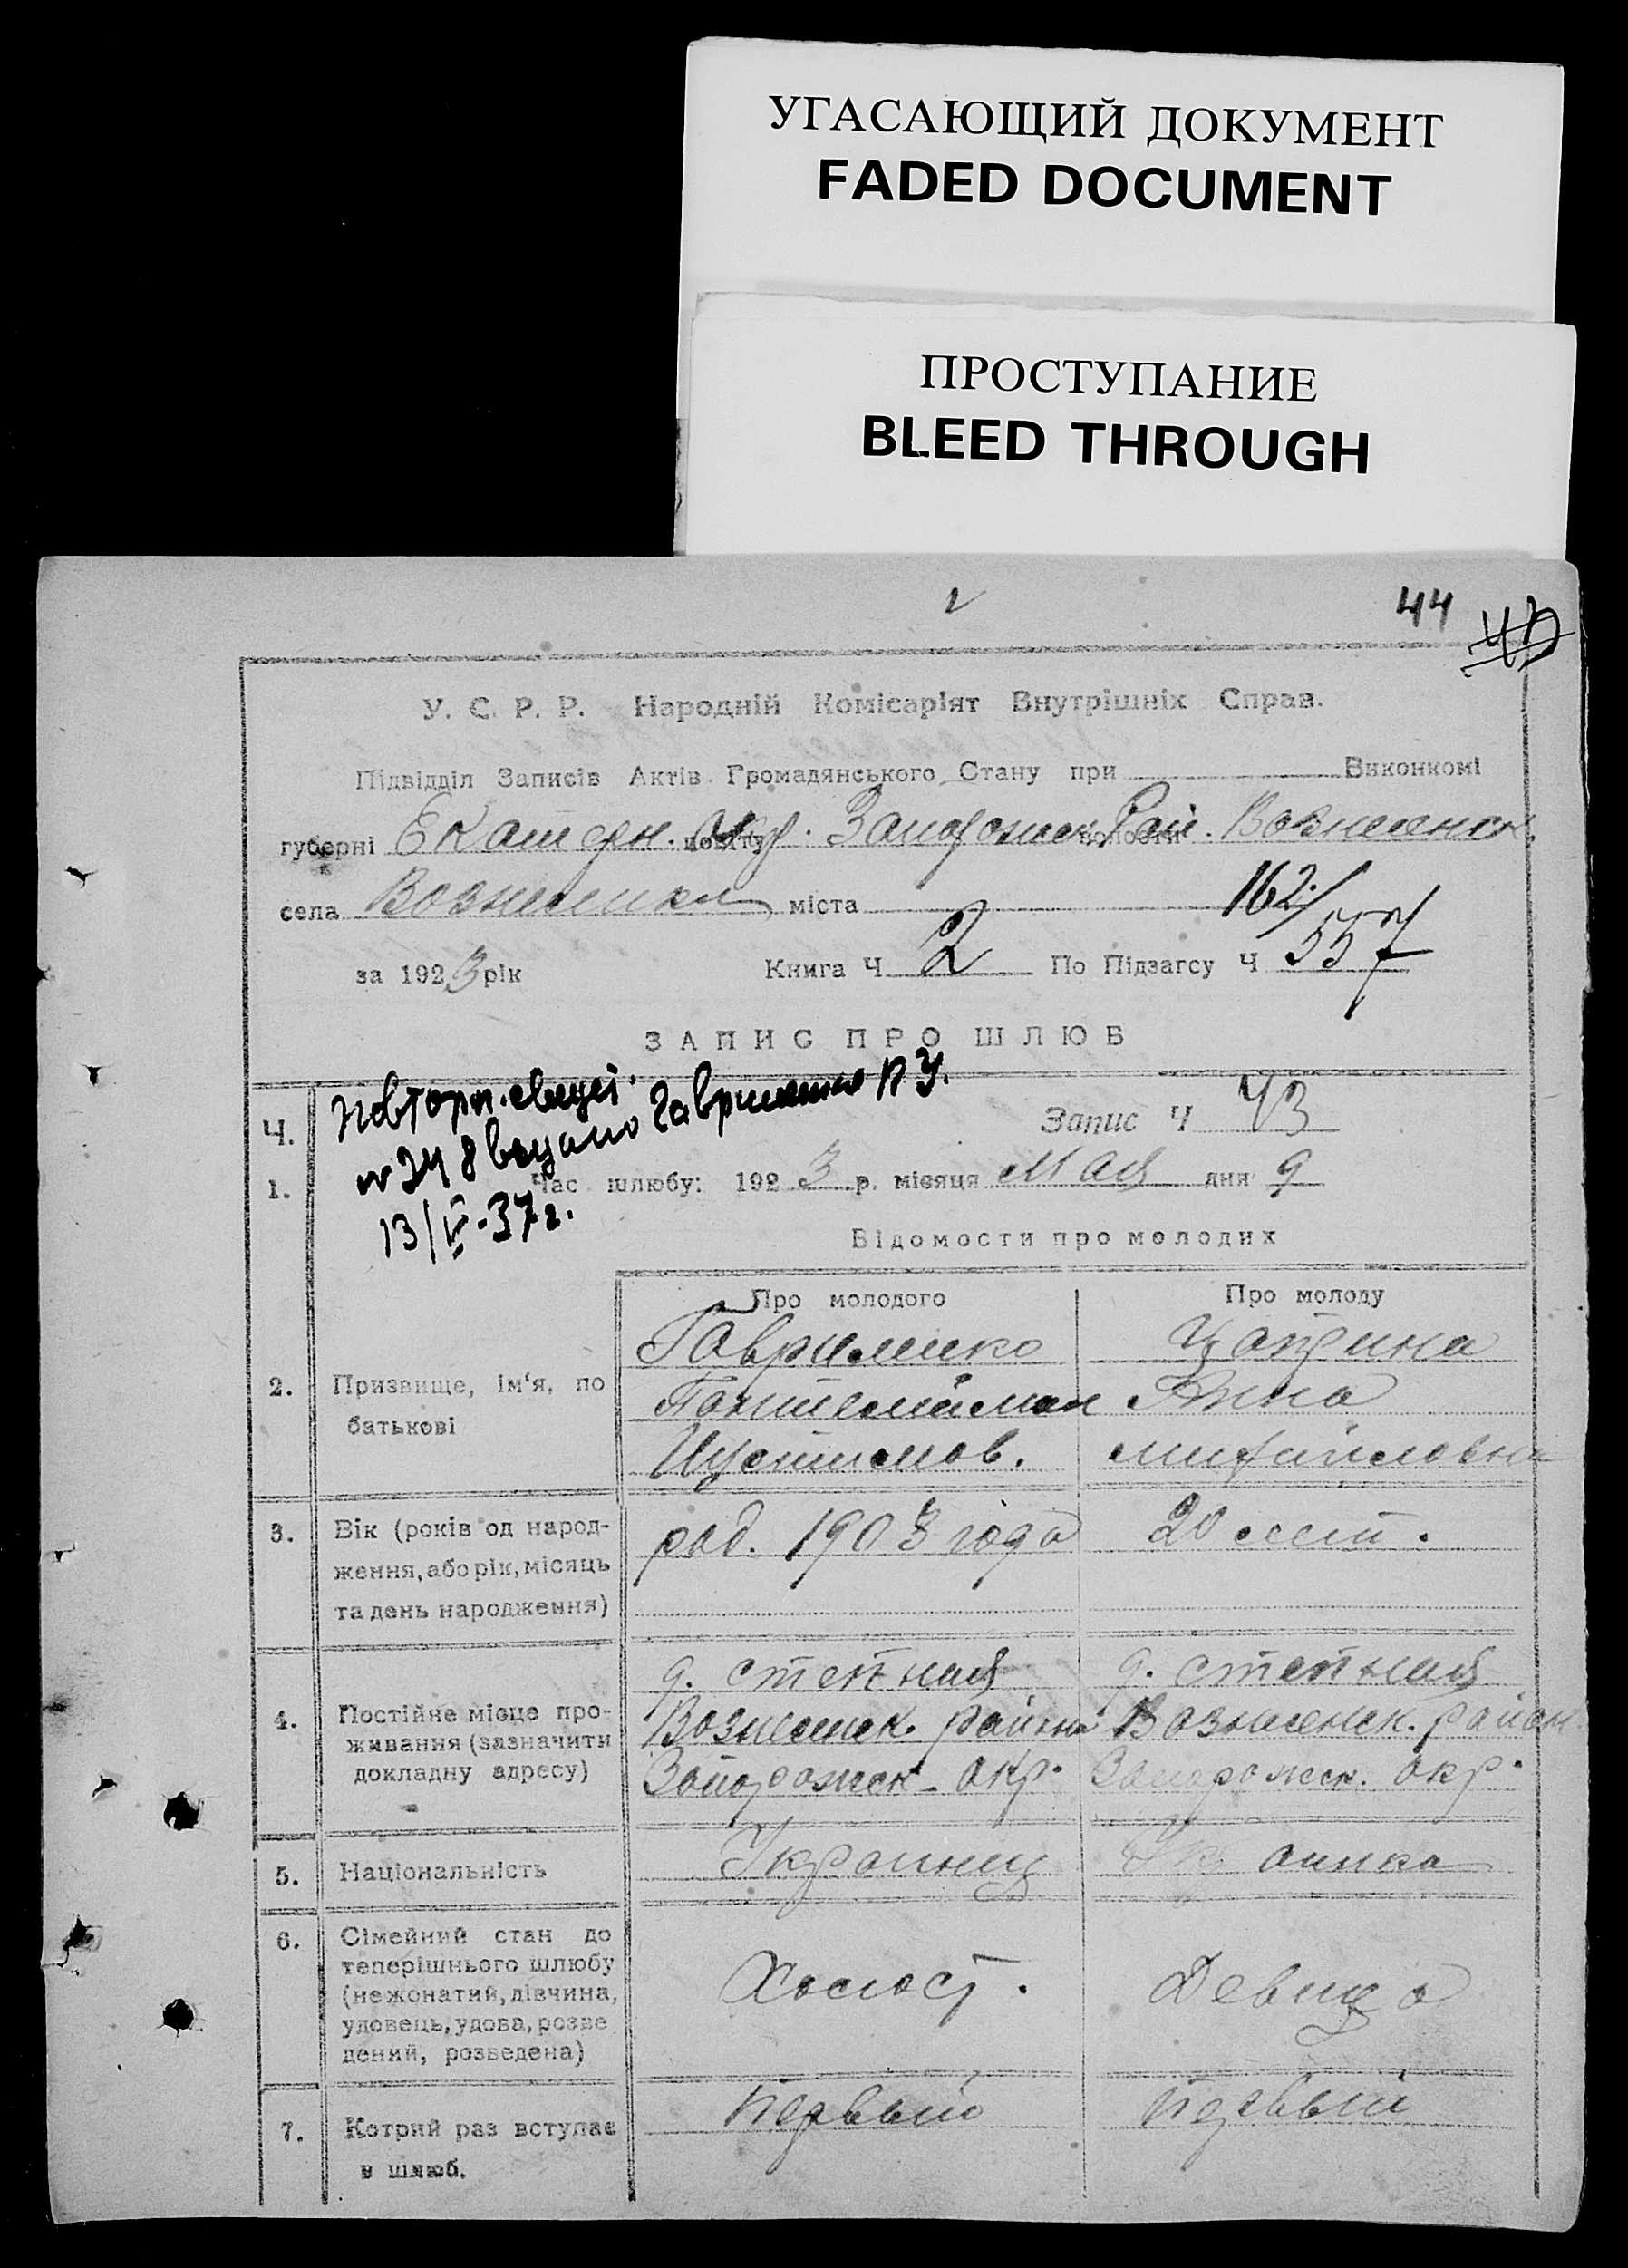 УГАСАЮЩИЙ ДОКУМЕНТ
FADED DOCUMENT
ПРОСТУПАНИЕ
BLEED THROUGH
44
У. С. Р. Р. Народній Комісаріят Внутрішніх Справ.
Підвідділ Записів Актів Громадянського Стану при Виконкомі
губерні Екатерн. повіту Окр. Запорожск. волости Рай. Вознесенск.
села Вознесенка міста
162/557
за 1923 рік Книга Ч 2 По Підзагсу Ч
ЗАПИС ПРО ШЛЮБ
Повторн. свидет.
Ч. Запис Ч 43
№ 248 выдано Гавриленко П У.
1. Час шлюбу: 1923 р. місяця Мая дня 9
13/IV-37г.
Відомости про молодих
Про молодого Про молоду
Гавриленко
2. Призвище, ім'я, по батькові
Пантелеймон Анна
Иустинов. Михайловна
3. Вік (років од народ-
ження, або рік, місяць
та день народження)
род. 1903 года 20 лет.
д. степная д. степная
4. Постійне місце про-
живання (зазначити
докладну адресу)
Вознесенск. района Вознесенск. район
Запорожск. окр. Запорожск. окр.
5. Національність Украинец Украинка
6. Сімейний стан до
теперішнього шлюбу
(нежонатий, дівчина,
удовець, удова, розве
дений, розведена)
Холост. Девица
7. Котрий раз вступає
в шлюб.
Первый Первый